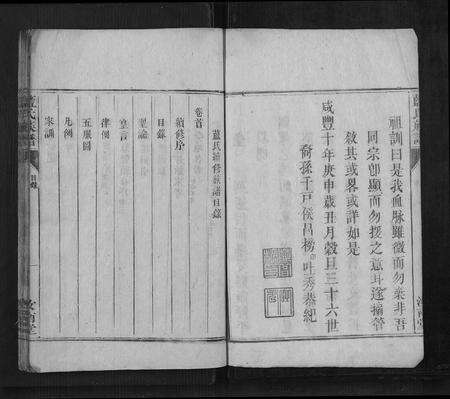 祖訓曰是我血脈雖微而勿棄非吾
同宗卽顯而勿援之意耳遂搦管
敘其或畧或詳如是
咸豐十年庚申歲丑月穀旦三十六世
裔孫千戶侯昌榜 秀恭紀
藍氏續修族譜目錄
卷首
續修序
目錄
聖諭
律例
五服圖
凡例
家訓
藍氏族譜
目錄
汝南堂